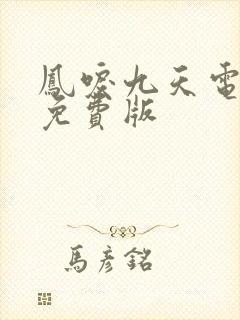 鳳唳九天電
免費版
馬彥銘